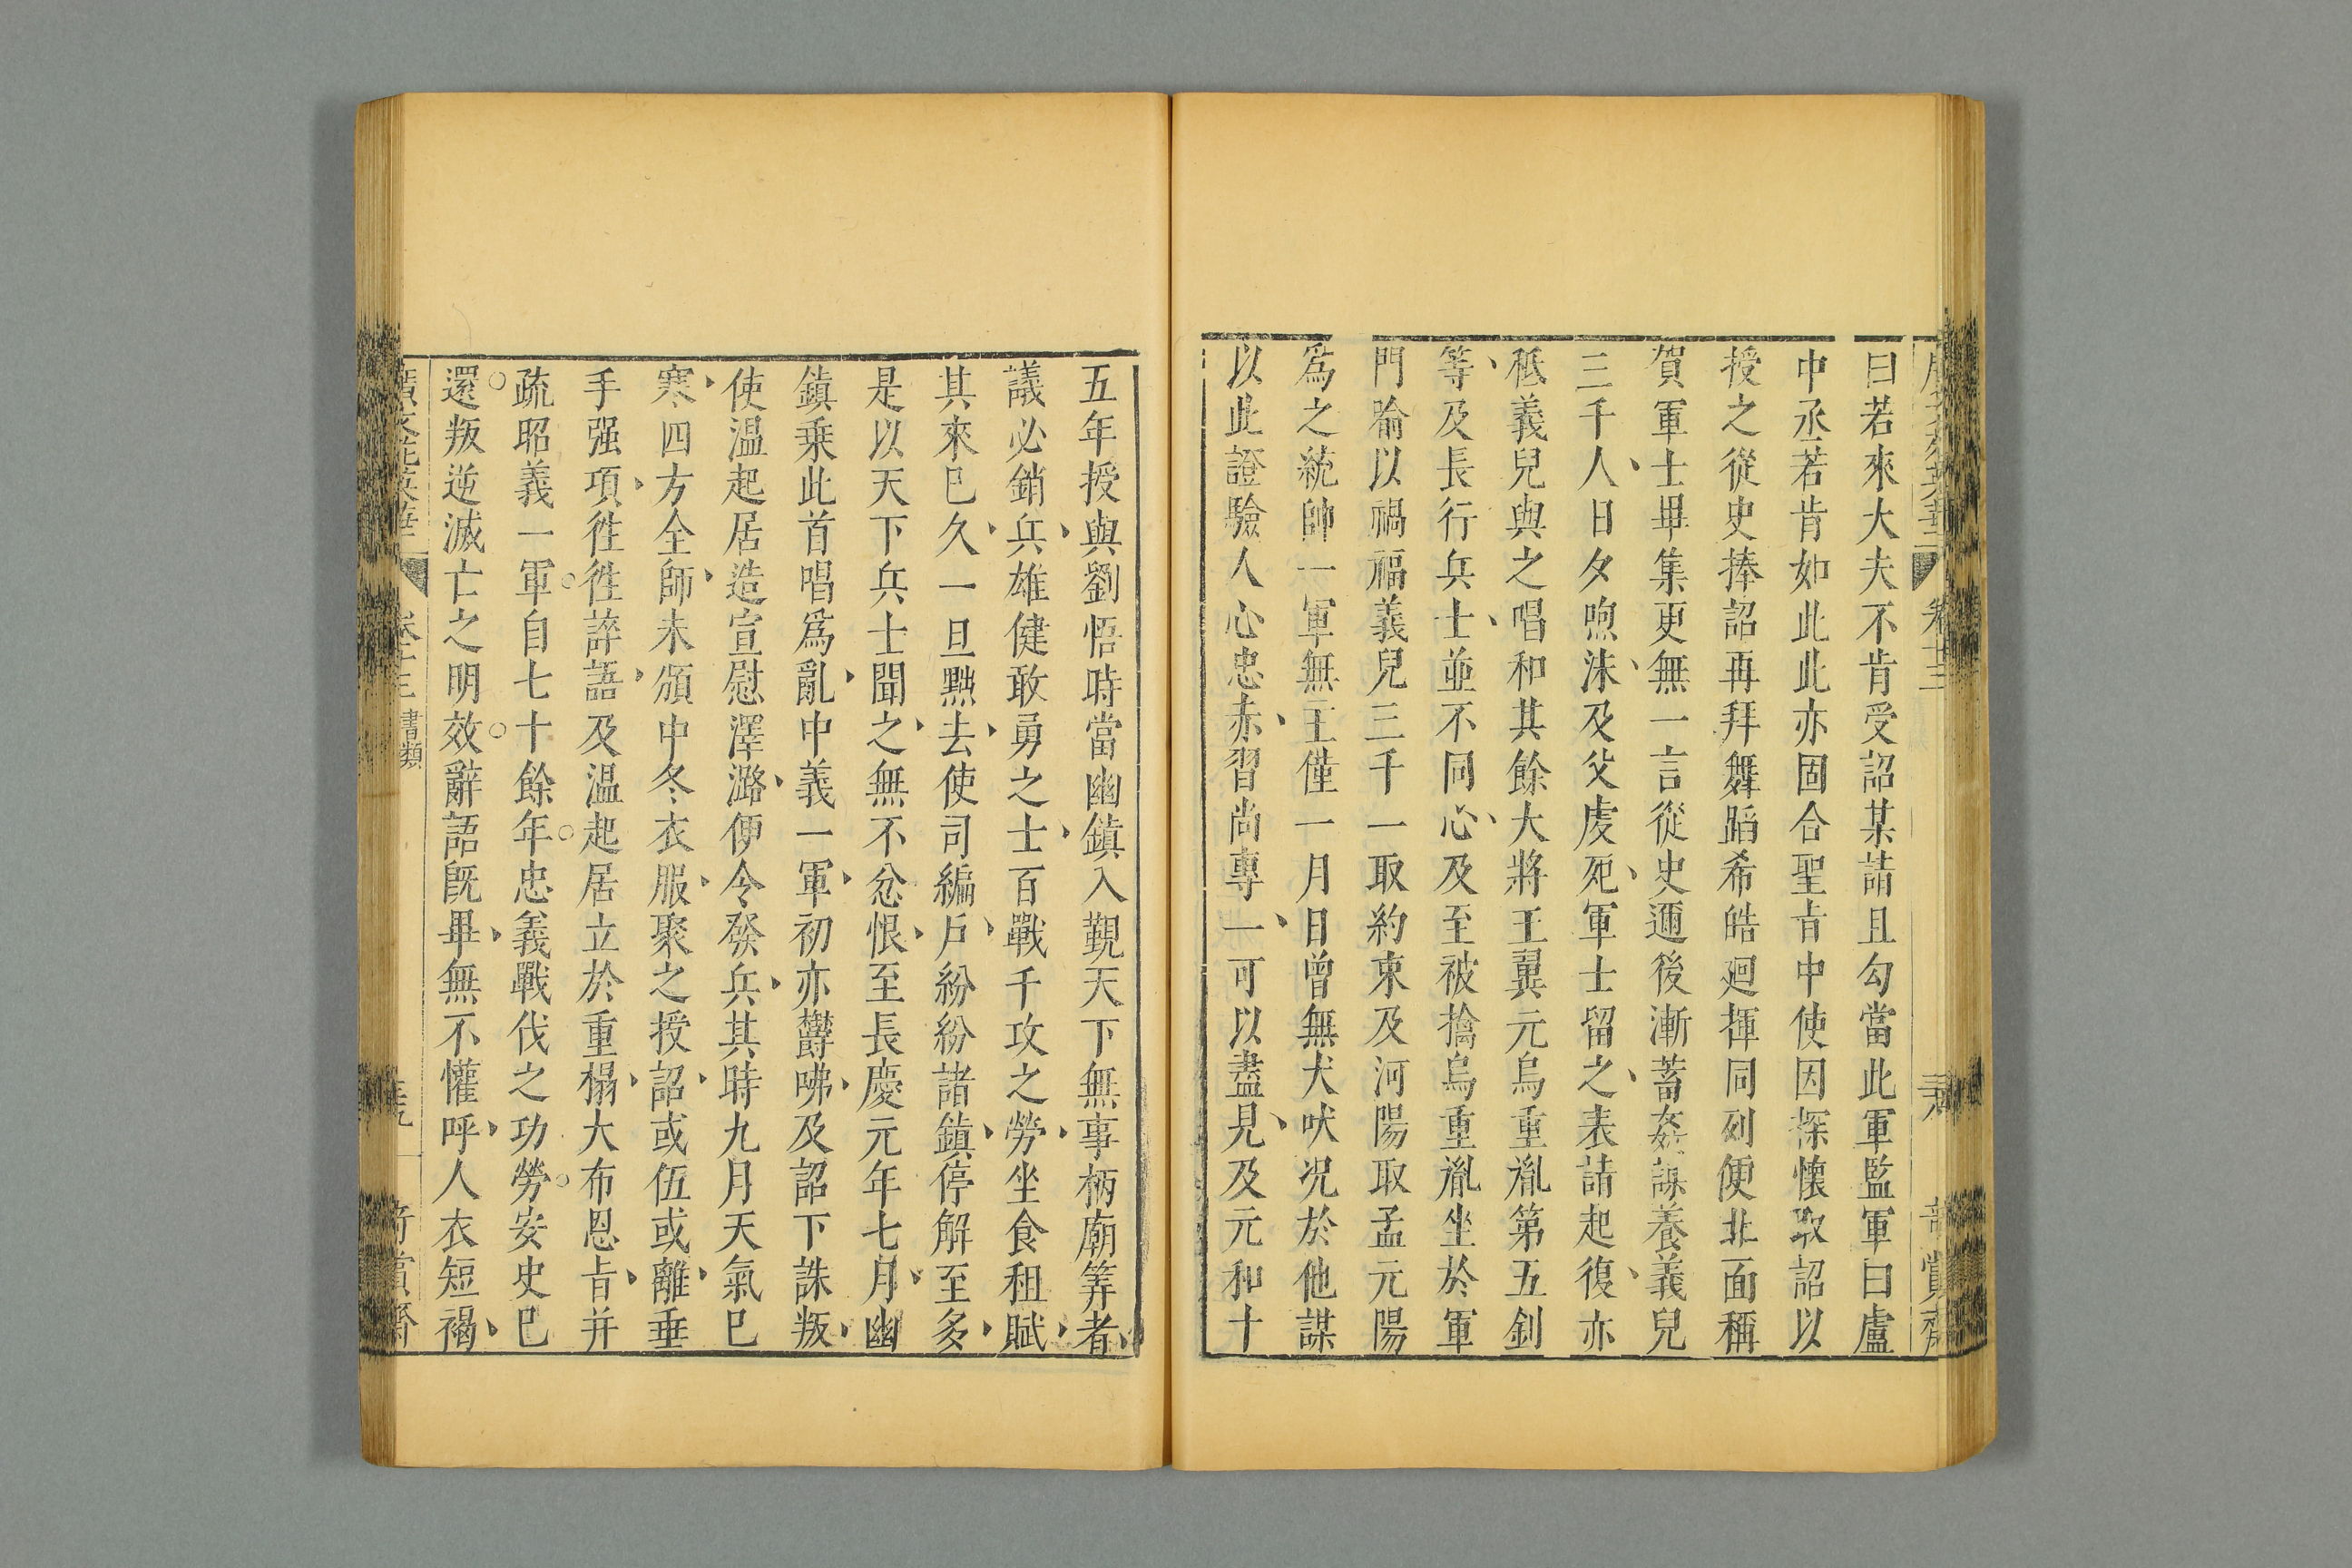 曰若來大夫不肯受詔某請且勾當此軍監軍曰盧
中丞若肯如此此亦固合聖旨中使因探懷取詔以
授之從史捧詔再拜舞蹈希皓廻揮同列便北面稱
賀軍士畢集更無一言從史邇後漸蓄姦謀養義兒
三千人日夕喣沫及父虔死軍士留之表請起復亦
秪義兒與之唱和其餘大將王翼元烏重胤第五釗
等及長行兵士並不同心及至被擒烏重胤坐於軍
門喻以禍福義兒三千一取約束及河陽取孟元陽
爲之統帥一軍無主僅一月日曾無犬吠况於他謀
以此證驗人心忠赤習尚專一可以盡見及元和十
五年授與劉悟時當幽鎮入覲天下無事柄廟筭者
議必銷兵雄健敢勇之士百戰千攻之勞坐食租賦
其來巳久一旦黜去使司編戶紛紛諸鎮停解至多
是以天下兵士聞之無不忿恨至長慶元年七月幽
鎮乗此首唱爲亂中義一軍初亦欝咈及詔下誅叛
使温起居造宣慰澤潞便令發兵其時九月天氣巳
寒四方全師未頒中冬衣服聚之授詔或伍或離垂
手强項徃徃誶語及温起居立於重榻大布恩旨并
疏昭義一軍自七十餘年忠義戰伐之功勞安史巳
還叛逆滅亡之明效辭語旣畢無不懽呼人衣短褐
書類